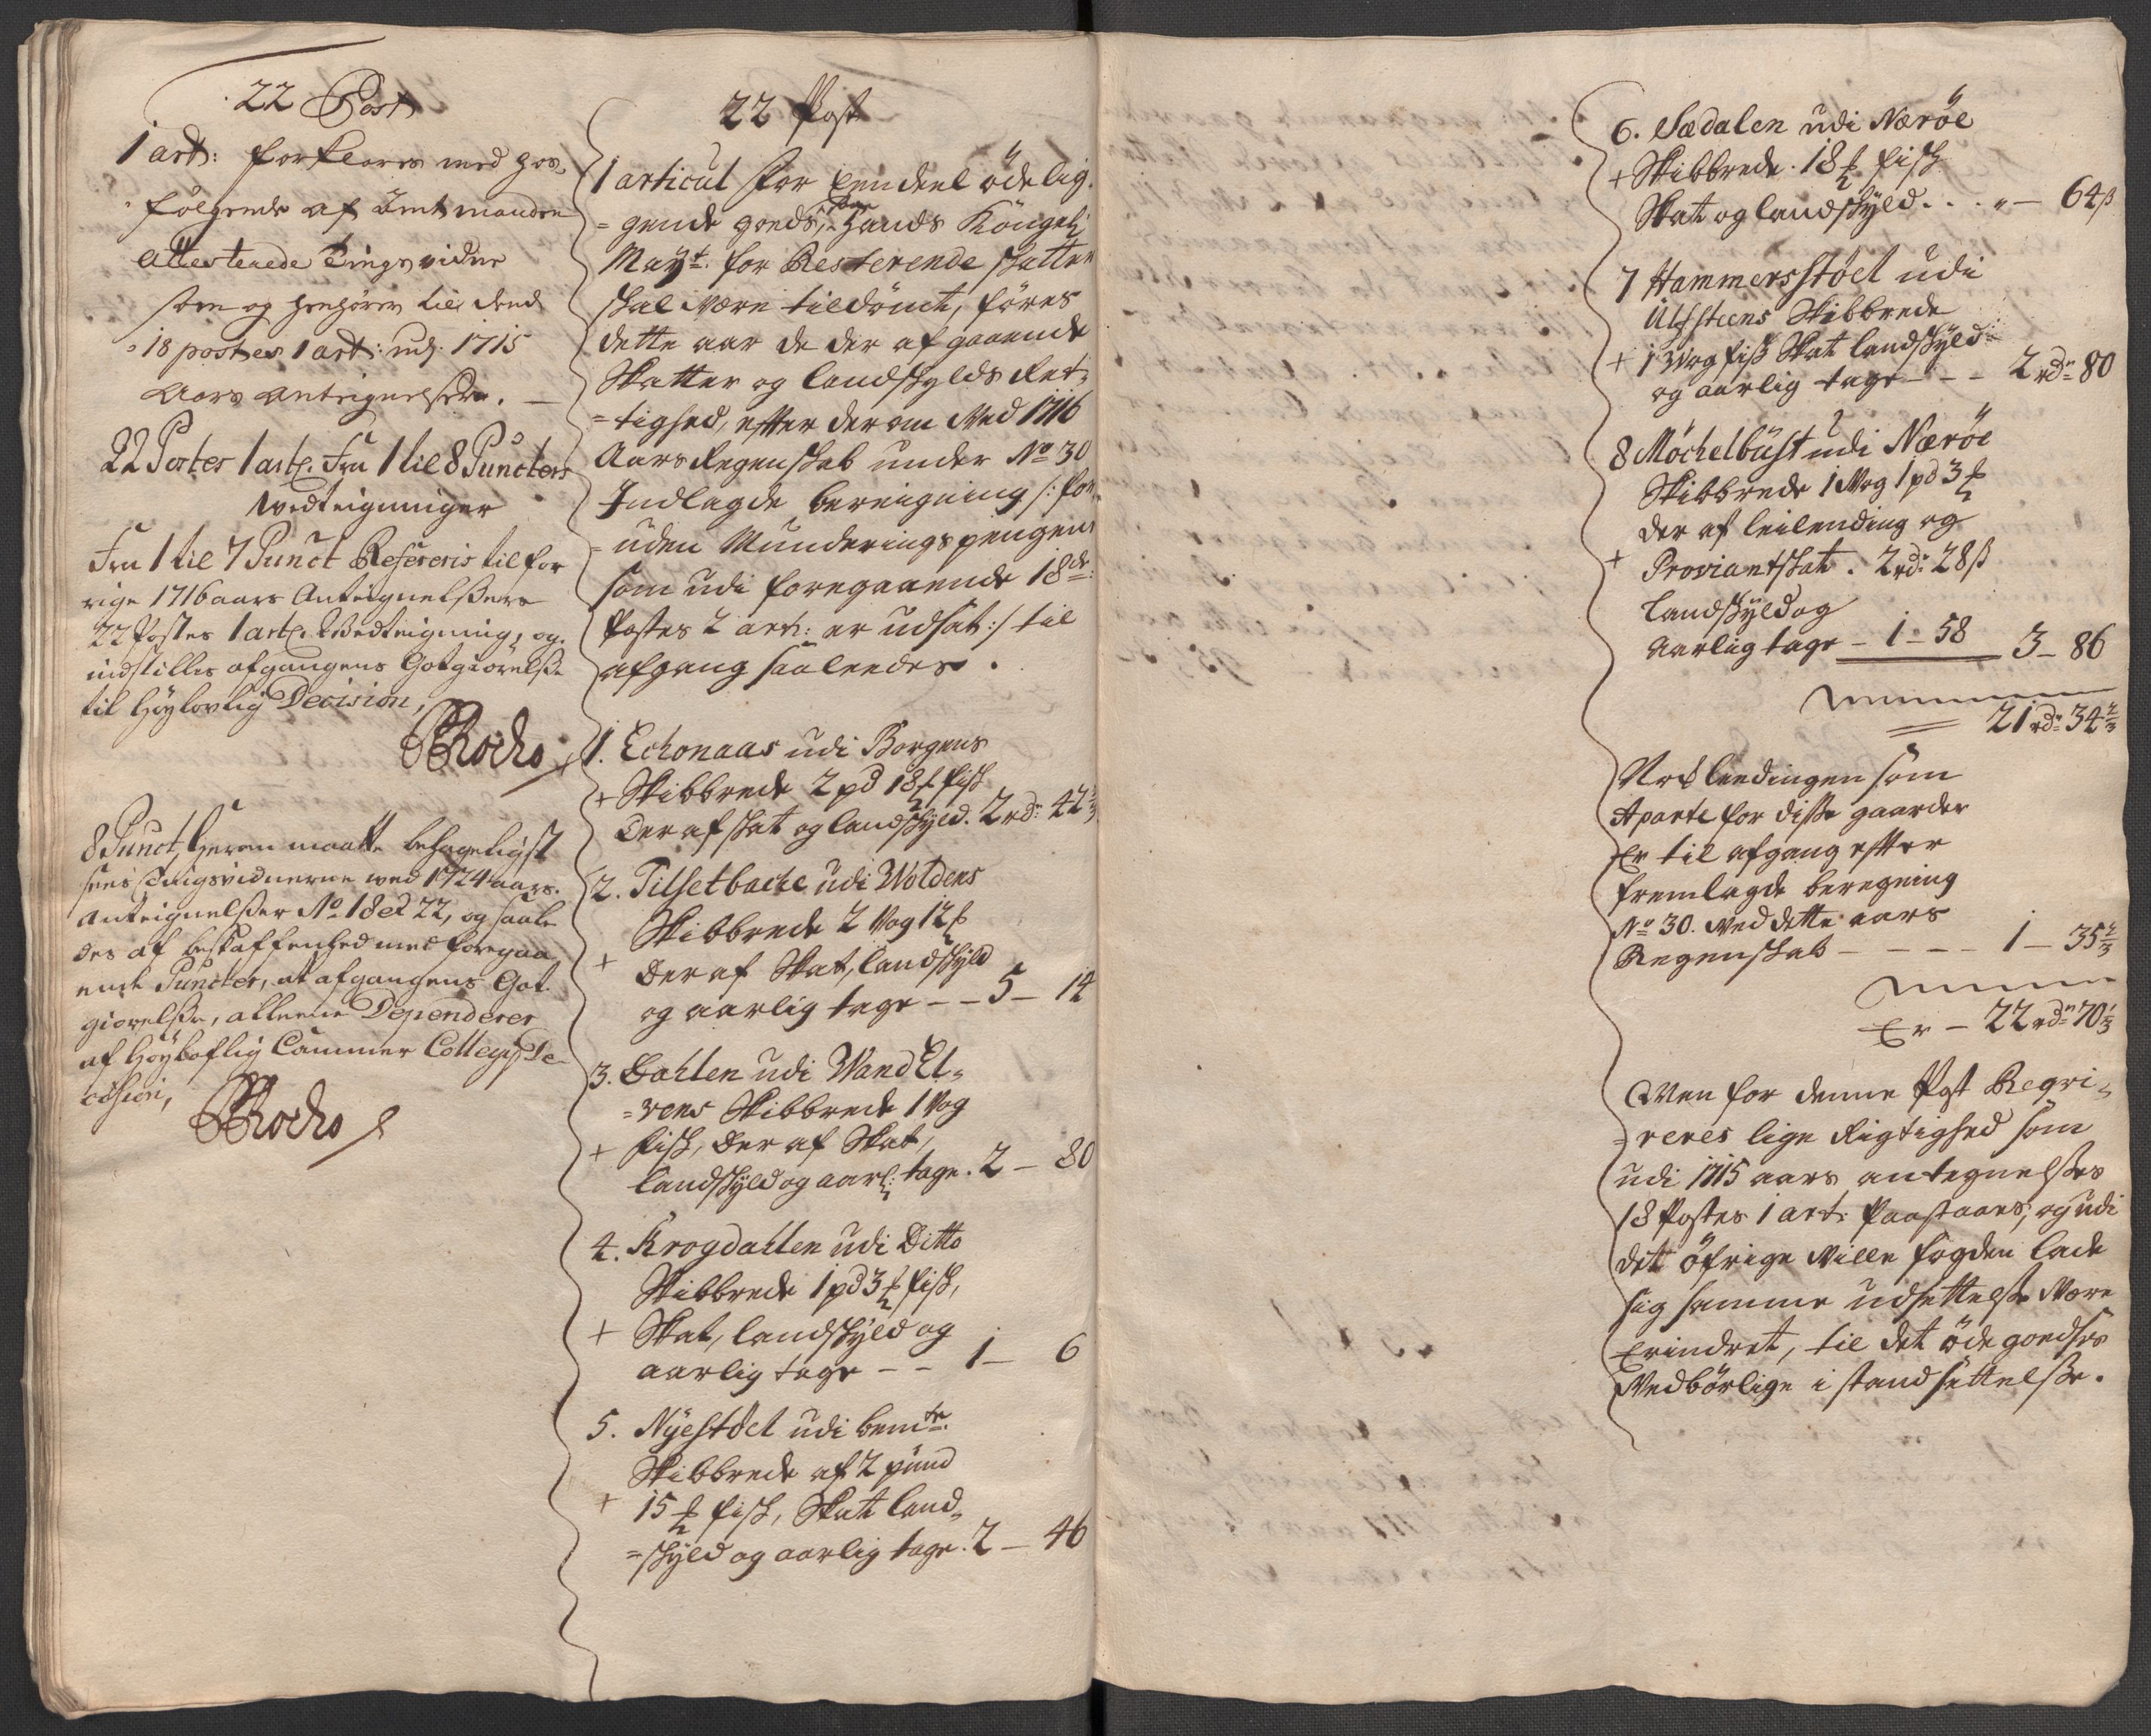 22 Post
1 art: forklares med hos
følgende af Amtmanden
Attesterede Tingsvidne
som og henhører til dend
18 postes 1 art: udj 1715
Aars Antegnelser.
22 Postes 1 artl. Fra 1 til 8 Puncters
Vedteigninger
Fra 1 til 7 Punct Refereris til for
rige 1716 aars Anteignelßers
22 Postes 1 artl. Vedteigning, og
indstilles afgangens Gotgiörelße
til Høylovlig Decision,

8 Punct, Herom maatte behageligst
sees Tingsvidnerne ved 1724 aars
Anteignelßer No 18 et 22, og saale
des af beskaffenhed med foregaa
ende Puncter, at afgangens Got
giørelße, alleene Dependerer
af Høyloflig Cammer Collegij De
cision,

22 Post
1 articul For Eendeel öde lig
gende goeds, som Hands Kongel:
Mayt. for Resterende skatter
skal være tildömt, föres
dette aar de der af gaaende
Skatter og landskylds Ret
tighed, efter derom Ved 1716
Aars Regenskab under No 30
Indlagde bereigning /: for
uden Munderings pengene
som udi foregaaende 18de:
Postes 2 art: er udsat :/ til
afgang saaleedes.
1. Echonaas udi Borgens
+ Skibbrede 2 pd 18 ℔ fisk
Der af skat og landskyld. 2 rdr 42 2/3
2. Tilsetbacke udi Woldens
Skibbrede 2 Vog 12 ℔
+ Der af Skat, landskyld
og aarlig tage - - 5 - 14
3. Dahlen udi Wand El
vens Skibbrede 1 Vog
+ fisk, Der af Skat,
landskyld og aarl: tage. 2 - 80
4. Krogdahlen udi Ditto
Skibbrede 1 pd 3 ℔ fisk,
+ Skat, landskyld og
aarlig tage - - 1 - 6
5. Nÿestöel udi bemte.
Skibbrede af 2 pund
+ 15 ℔ fisk, Skat land
skyld og aarlig tage. 2 - 46

6. Sædalen udi Næröe
+ Skibbrede. 18 ℔ fisk
Skat og landskyld . . . „ - 64 ß
7 Hammersstöel udi
Ulfsteens Skibbrede
+ 1 Vog fisk Skat landskyld
og aarlig tage - - - 2 rdr 80
8 Möchelbust udi Næröe
Skibbrede 1 Vog 1 pd 3 ℔
der af leilending og
+ Proviantskat. 2 rdr 28 ß
landskyld og
Aarlig tage - 1 - 58 3 - 86
21 rdr 34 2/3
leedingen som
Aparte for disse gaarder
Er til afgang efter
fremlagde beregning
No 30. Ved dette aars
Regenskab - - - - 1 - 35 2/3
Er - 22 rdr 70 1/3
Men for denne Post Reqvi
reres lige Rigtighed som
udi 1715 aars antegnelßes
18 Postes 1 art: Paastaaes, og udi
det öfrige Ville fogden lade
sig samme udsettelße Være
Erindret, til det öde goedses
Vedbörlige i standsettelße.